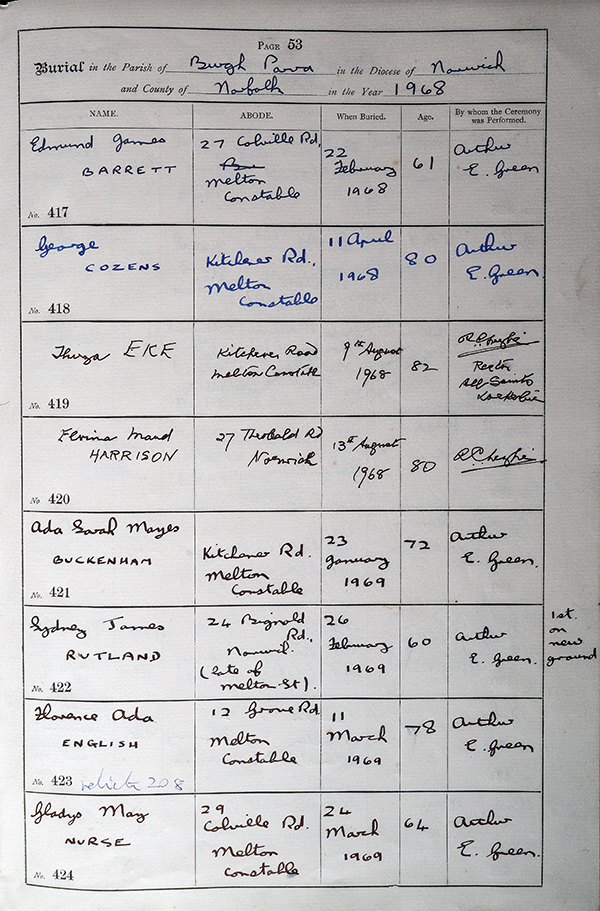 PAGE 53
Burial in the Parish of Burgh Parva in the Diocese of Norwich
and County of Norfolk in the Year 1968
NAME.
ABODE.
When Buried.
Age.
By whom the Ceremony
was Performed.
Edmund James
BARRETT
No. 417
27 Colville Rd,
Melton
Constable
22
February
1968
61
Arthur
E. Green
George
COZENS
No. 418
Kitchener Rd.,
Melton
Constable
11 April
1968
80
Arthur
E. Green.
Thurza EKE
No. 419
Kitchener Road
Melton Constable
9th August
1968
82
Rector
All Saints
Elvina Maud
HARRISON
No 420
27 Theobald Rd
Norwich
13th August
1968
80
Ada Sarah Mayes
BUCKENHAM
No. 421
Kitchener Rd.
Melton
Constable
23
January
1969
72
Arthur
E. Green.
Sydney James
RUTLAND
No. 422
24 Bignold
Rd.,
Norwich.
(late of
Melton St).
26
February
1969
60
Arthur
E. Green.
1st.
on
new
ground
Florence Ada
ENGLISH
No. 423 relict 208
12 Grove Rd
Melton
Constable
11
March
1969
78
Arthur
E. Green
Gladys May
NURSE
No. 424
29
Colville Rd.
Melton
Constable
24
March
1969
64
Arthur
E. Green.